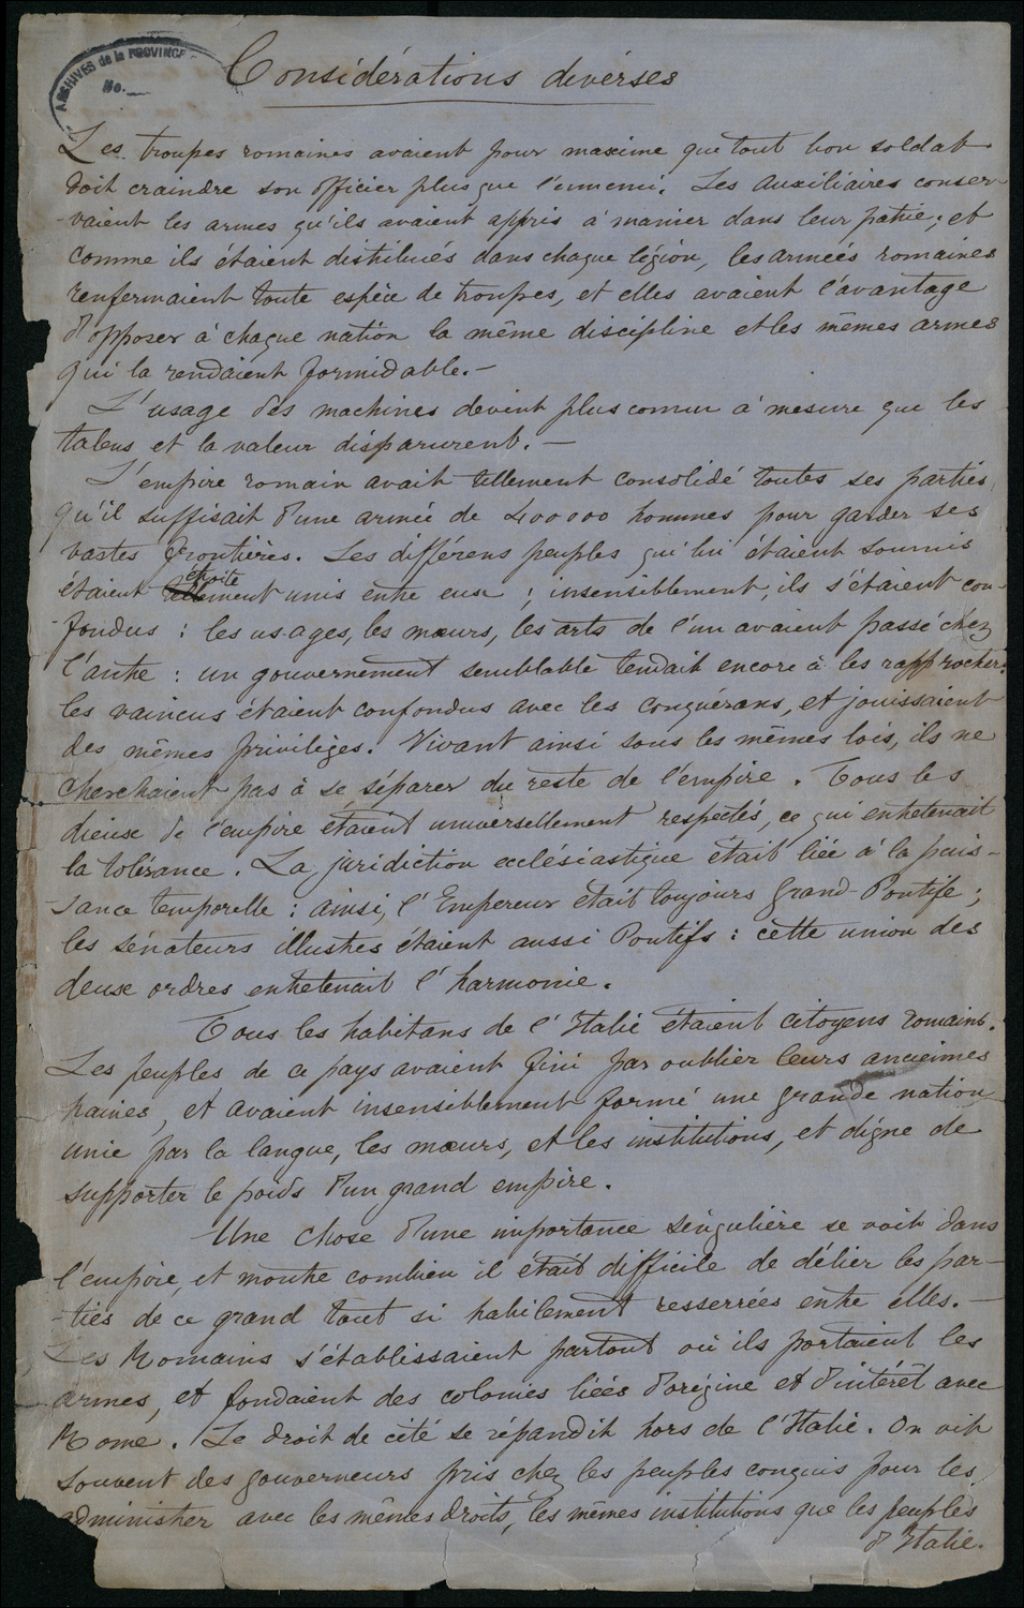 ARCHIVES de la PROVINCE
No.
Considérations diverses
Les troupes romaines avaient pour maxime que tout bon soldat
doit craindre son officier plus que l'ennemi. Les Auxiliaires conser-
-vaient les armes qu'ils avaient appris à manier dans leur patrie; et
comme ils étaient distribués dans chaque légion, les armées romaines
renfermaient toute espèce de troupes, et elles avaient l'avantage
d'opposer à chaque nation la même discipline et les mêmes armes
qui la rendaient formidable. —
L'usage des machines devint plus comun à mesure que les
talens et la valeur disparurent. —
L'empire romain avait tellement consolidé toutes ses parties,
qu'il suffisait d'une armée de 400000 hommes pour garder ses
vastes frontières. Les différens peuples qui lui étaient soumis
étroite
étaient ment unis entre eux ; insensiblement, ils s'étaient con-
-fondus : les usages, les mœurs, les arts de l'un avaient passé chez
l'autre : un gouvernement semblable tendait encore à les rapprocher:
les vaincus étaient confondus avec les conquérans, et jouissaient
des mêmes privilèges. Vivant ainsi sous les mêmes lois, ils ne
cherchaient pas à se séparer du reste de l'empire. Tous les
dieux de l'empire étaient universellement respectés, ce qui entretenait
la tolérance. La juridiction ecclésiastique était liée à la puis-
-sance temporelle : ainsi, l'Empereur était toujours Grand-Pontife ;
les sénateurs illustres étaient aussi Pontifs : cette union des
deux ordres entretenait l'harmonie.
Tous les habitans de l'Italie étaient citoyens romains.
Les peuples de ce pays avaient fini par oublier leurs anciennes
haines, et avaient insensiblement formé une grande nation
unie par la langue, les mœurs, et les institutions, et digne de
supporter le poids d'un grand empire.
Une chose d'une importance singulière se voit dans
l'empire, et montre combien il était difficile de délier les par-
-ties de ce grand tout si habilement resserrées entre elles. —
Les Romains s'établissaient partout où ils portaient les
armes, et fondaient des colonies liées d'origine et d'intérêt avec
Rome. Le droit de cité se répandit hors de l'Italie. On vit
souvent des gouverneurs pris chez les peuples conquis pour les
administrer avec les mêmes droits, les mêmes institutions que les peuples
d'Italie.